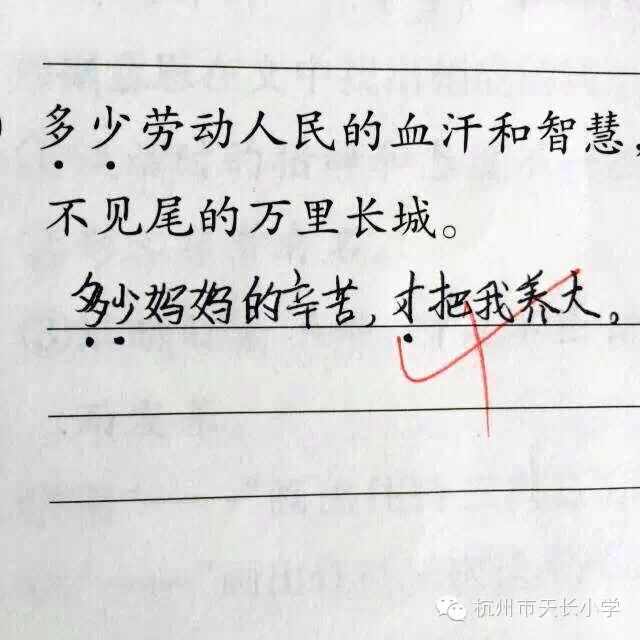 多少劳动人民的血汗和智慧,
不见尾的万里长城。
多少妈妈的辛苦,才把我养大。
杭州市天长小学